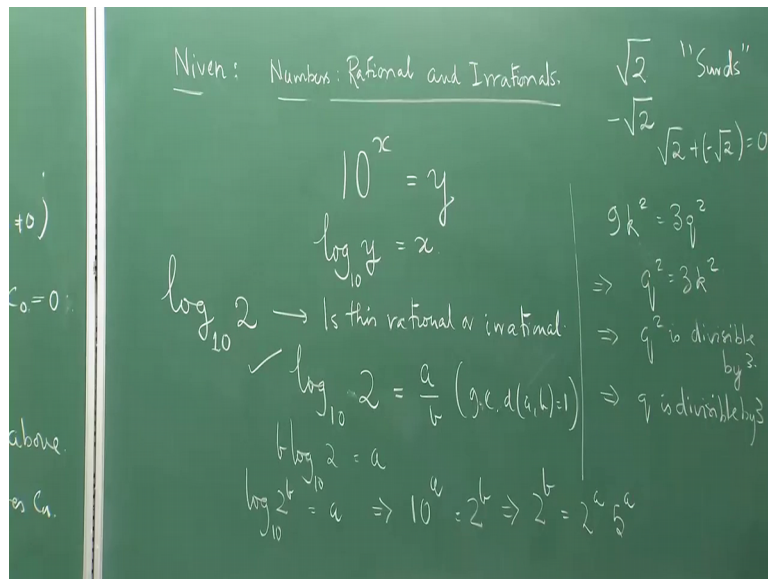 ≠0)
C₀=0
above.
es Cn.
Niven: Numbers: Rational and Irrationals.
10^x = y
log_10 y = x
log_10 2 → Is this rational or irrational.
✓ log_10 2 = a/b (g.c.d(a,b)=1)
b log_10 2 = a
log_10 2^b = a ⇒ 10^a = 2^b ⇒ 2^b = 2^a 5^a
√2 "Surds"
-√2
√2+(-√2)=0
9k² = 3q²
⇒ q² = 3k²
⇒ q² is divisible
by 3.
⇒ q is divisible by 3